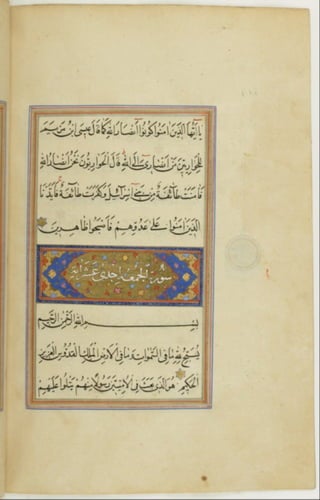 يا أيها الذين امنوا كونوا أنصار الله كما قال عيسى ابن مريم
للحواريين من أنصاري إلى الله قال الحواريون نحن أنصار الله
فامنت طائفة من بني إسرائيل وكفرت طائفة فأيدنا
الذين امنوا على عدوهم فأصبحوا ظاهرين
سورة الجمعة احدى عشر اية
بسم الله الرحمن الرحيم
يسبح لله ما في السموات وما في الارض الملك القدوس العزيز
الحكيم هو الذي بعث في الاميين رسولا منهم يتلوا عليهم